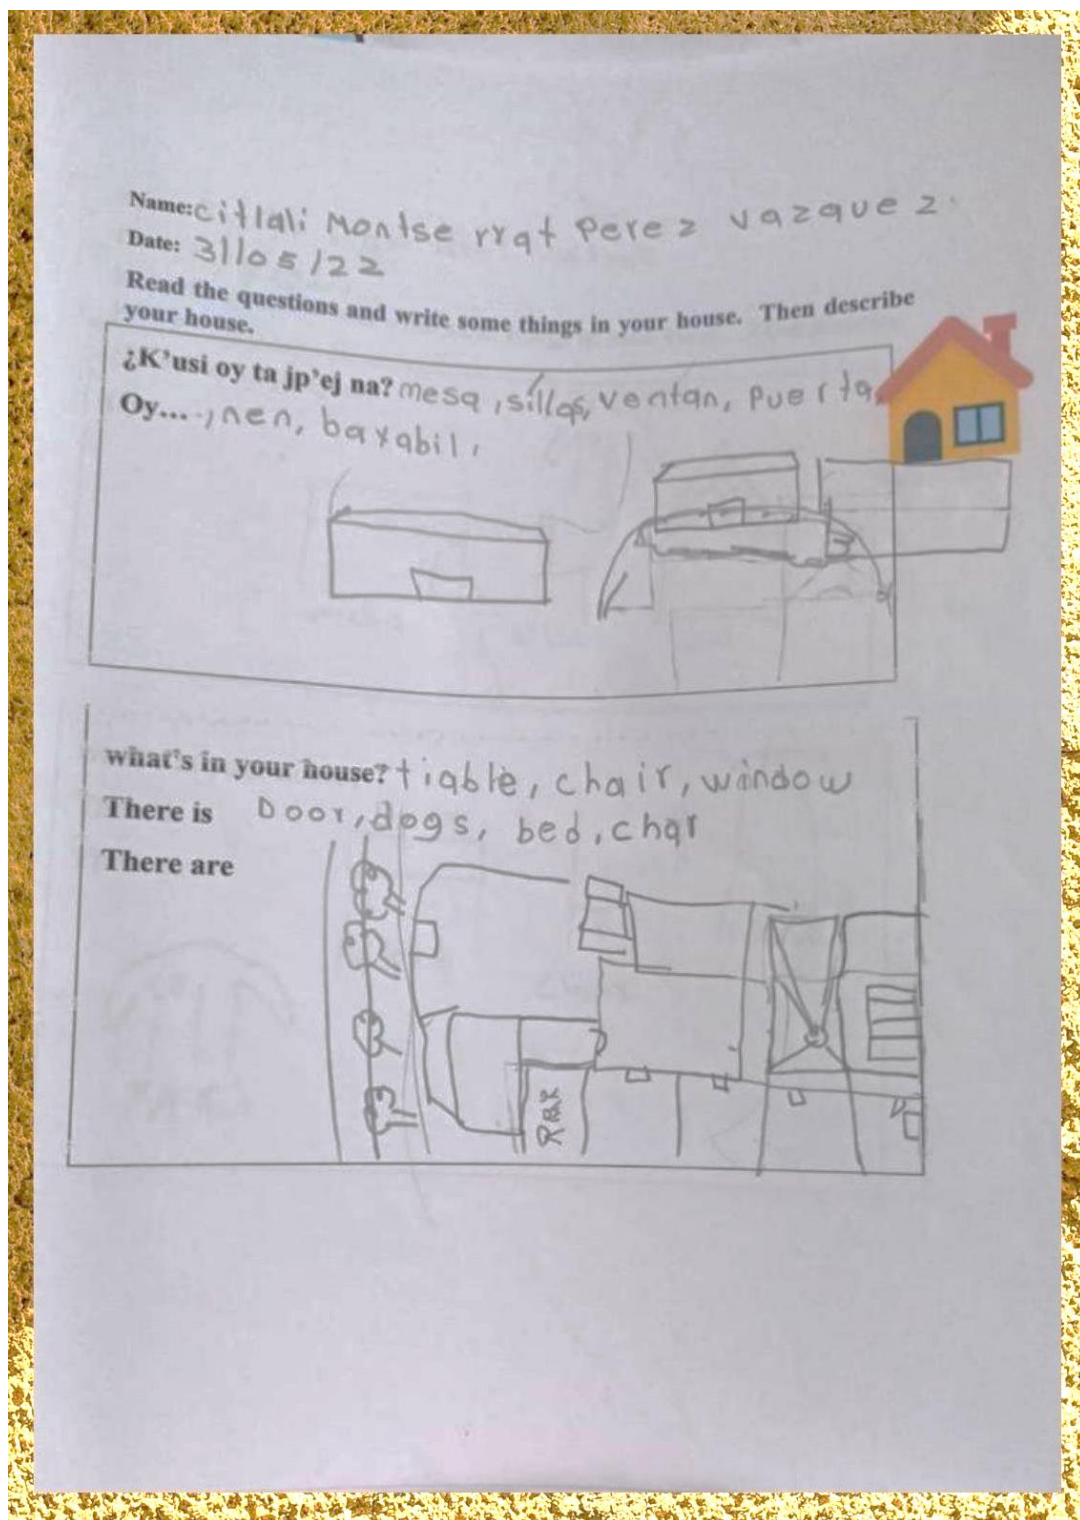 Name: citlali Montse rrat Perez vazquez.
Date: 31/05/22
Read the questions and write some things in your house. Then describe
your house.
¿K'usi oy ta jp'ej na? mesa, sillas, ventan, puerta,
Oy... nen, baxabil,
what's in your house? tiable, chair, window
There is Door, dogs, bed, char
There are